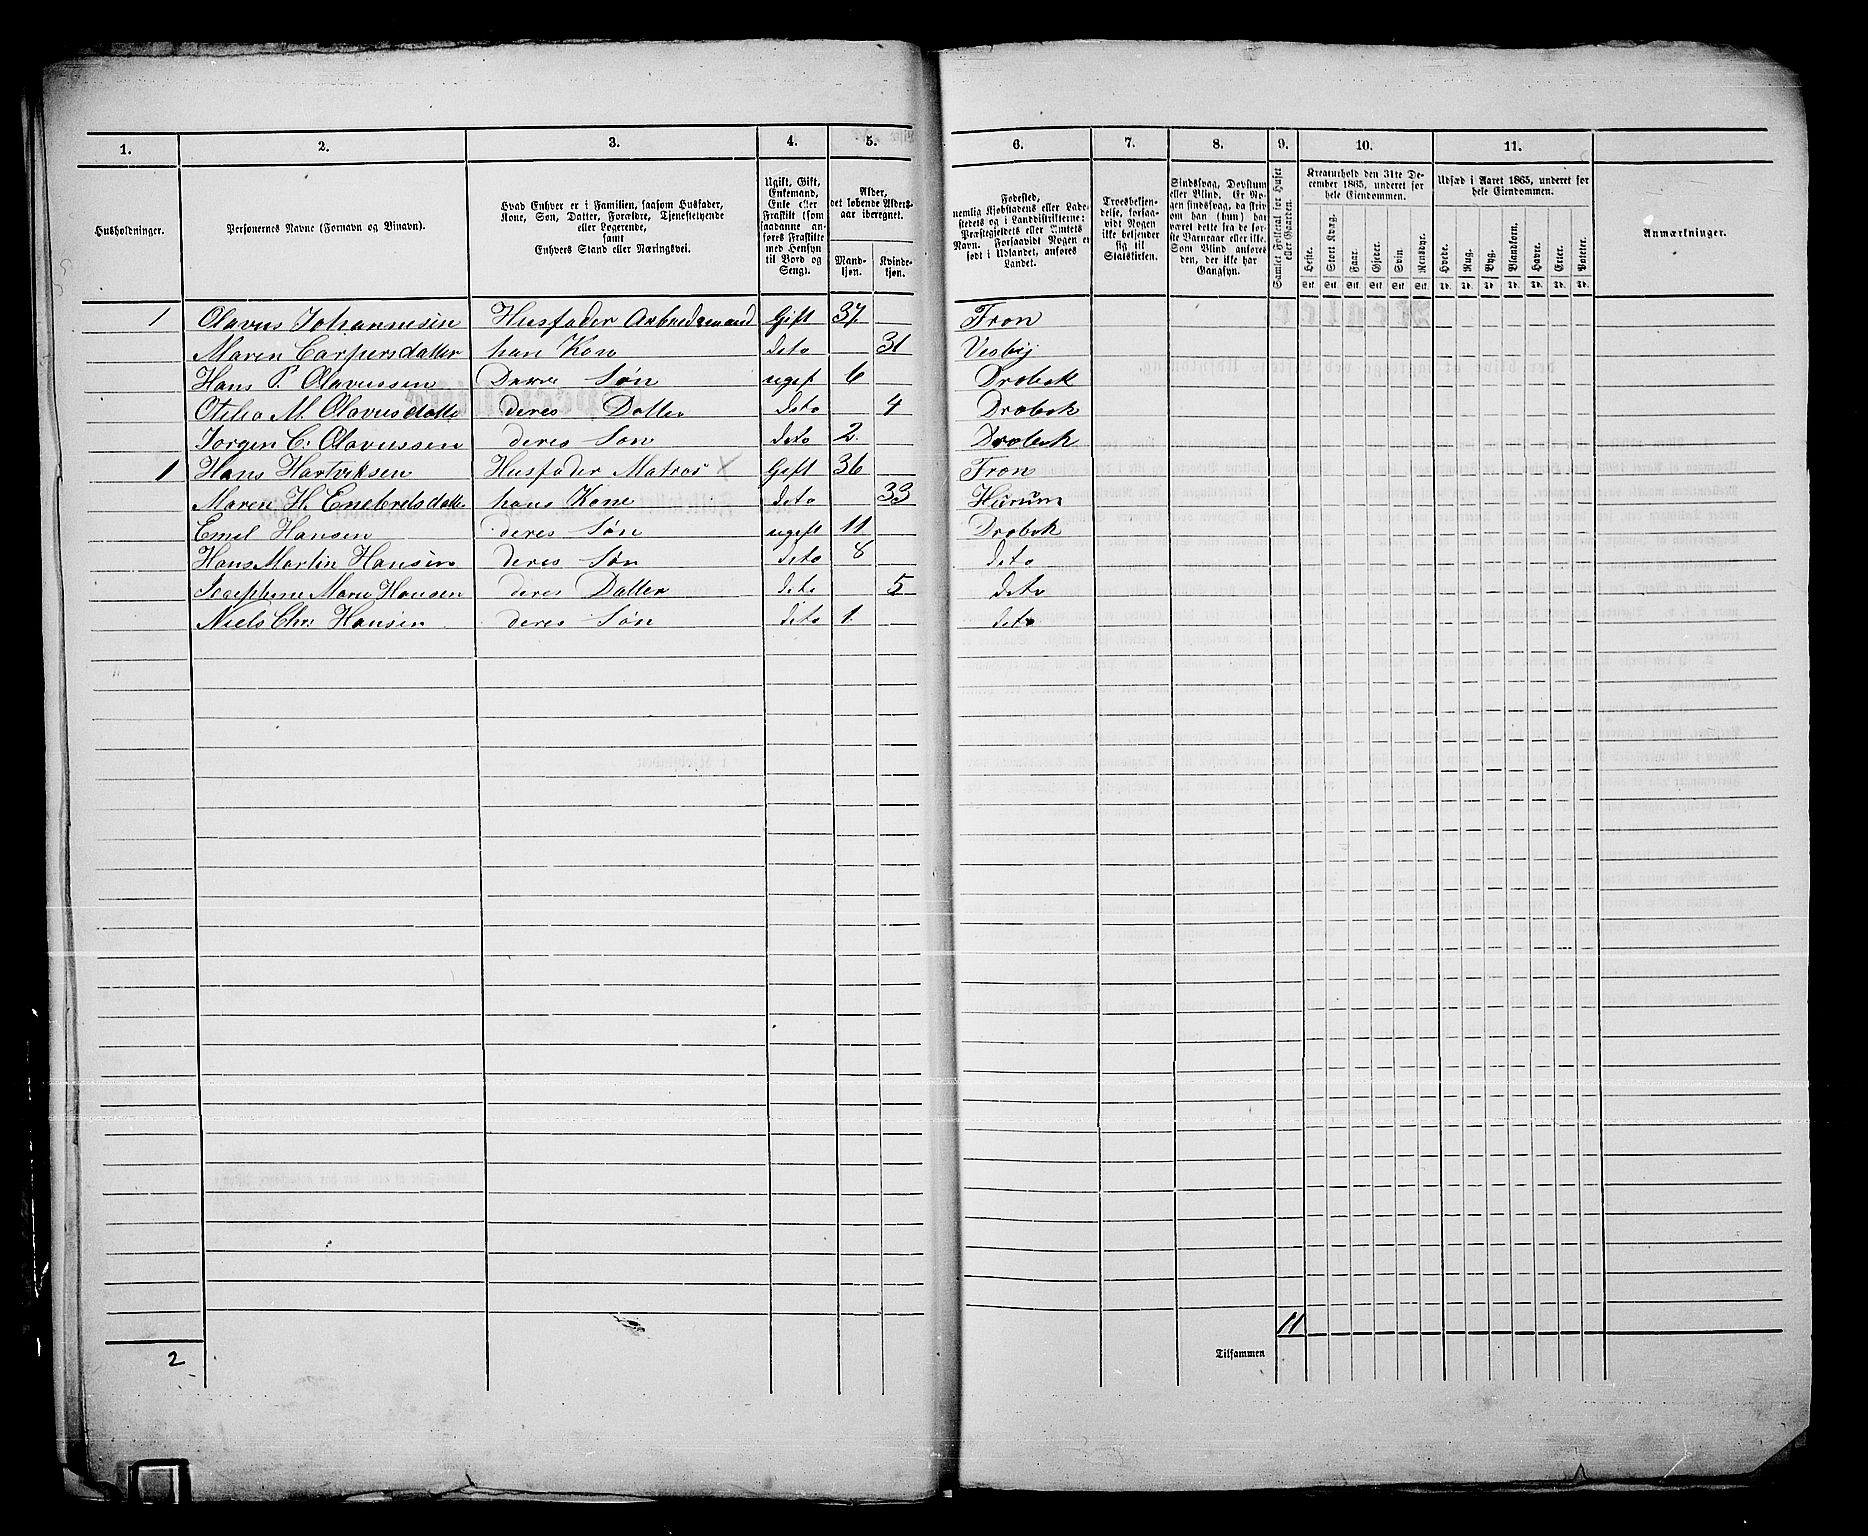 1. 2. 3. 4. 5. 6. 7. 8. 9. 10. 11.
Husholdninger.
Personernes Navne (Fornavn og Tilnavn).
Hvad Enhver er i Familien, saasom Husfader, Kone, Søn, Datter, Forældre, Tjenestetyende eller Logerende, samt Enhvers Stand eller Næringsvei.
Ugift, Gift, Enkemand, Enke eller Fraskilt (som saadanne anføres Fraskilte med Hensyn til Bord og Seng).
Alder, det løbende Alders-aar iberegnet.
Mand-kjøn. Kvinde-kjøn.
Fødested, nemlig Kjøbstadens eller Ladestedets og i Landdistrikterne: Præstegjeldets eller Amtets Navn. Forsaavidt Nogen er født i Udlandet, anføres Landet.
Troesbekjendelse, forsaavidt Nogen ikke bekjender sig til Statskirken.
Sindssvag, Døvstum eller Blind. Er Nogen sindssvag, da skrives om han (hun) har været dette fra de første Barneaar eller ikke. Som Blind anføres den, der ikke har Gangsyn.
Samlet Folketal for Huset eller Gaarden.
Kreaturhold den 31te December 1865, underet for hele Eiendommen.
Heste. Stort Kvæg. Faar. Gjeter. Svin. Rensdyr.
Udsæd i Aaret 1865, underet for hele Eiendommen.
Hvede. Rug. Byg. Blandkorn. Havre. Erter. Poteter.
Anmærkninger.
Stk. Stk. Stk. Stk. Stk. Stk. Td. Td. Td. Td. Td. Td. Td.
1 Olavus Johannesen Husfader Arbeidsmand Gift 37 Fron
Maren Caspersdatter han Kone deto 31 Vesby
Hans P. Olavussen Derre Søn ugift 6 Drøbak
Otilia M. Olavusdatte deres Datter deto 4 Drøbak
Jørgen C. Olavussen deres Søn deto 2 Drøbak
1 Hans Hartviksen Husfader Matros x Gift 36 Fron
Maren H. Enebretsdatte hans Kone deto 33 Hurum
Emel Hansen deres Søn ugift 11 Drøbak
Hans Martin Hansen deres Søn deto 8 deto
Josephine Marie Hansen deres Datter deto 5 deto
Niels Chr: Hansen deres Søn deto 1 deto
11
2 Tilsammen